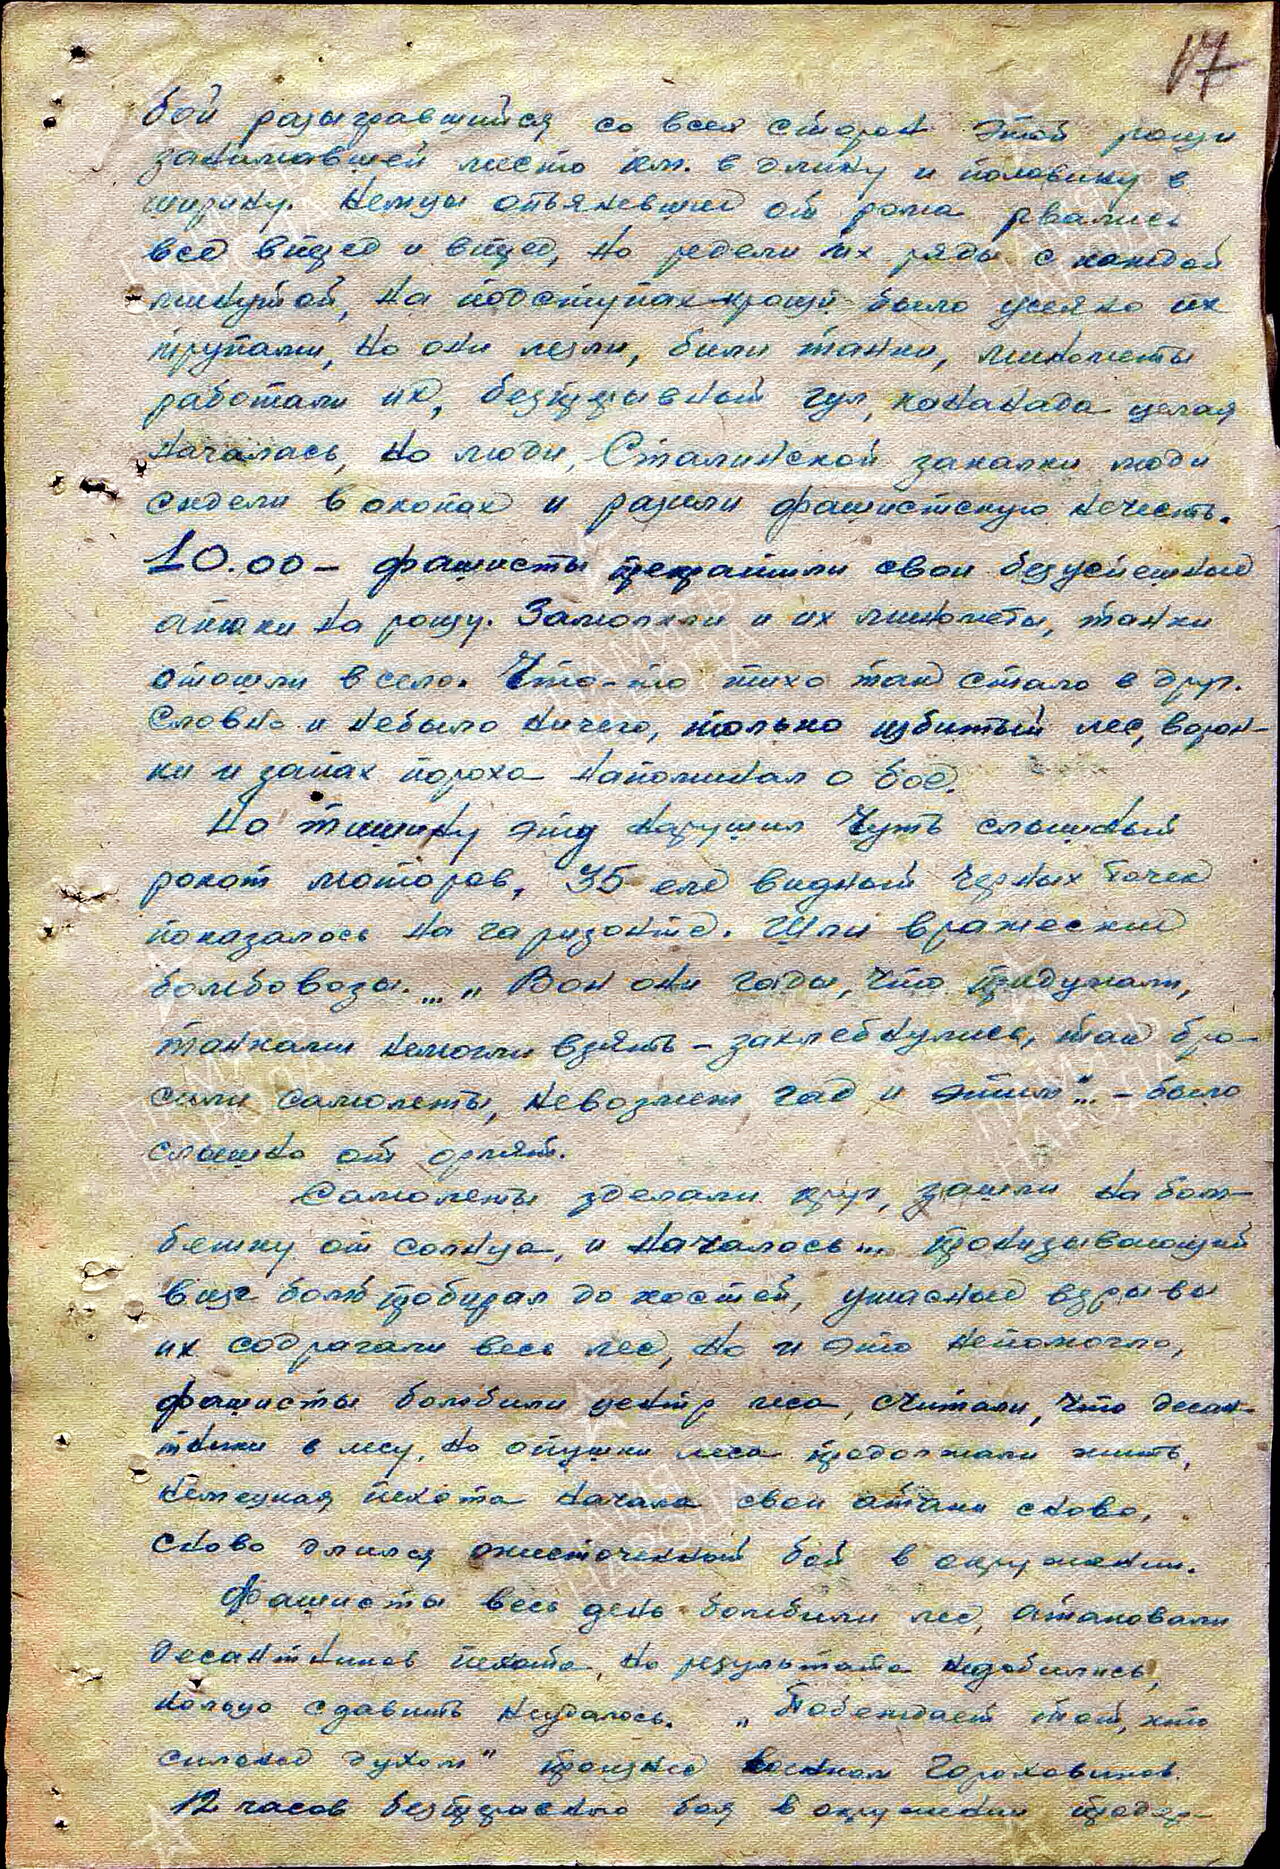 17
бой разыгравшийся со всех сторон этой рощи
занимавшей место км. в длину и половину в
ширину. Немцы опьяневшие от рома рвались
все вперед и вперед, но редели их ряды с каждой
минутой, на подступах к рощи было усеяно их
трупами, но они лезли, били танки, минометы
работали их, безпрерывный гул, кананада целая
началась, но люди, Сталинской закалки люди
сидели в окопах и разили фашистскую нечесть.
10.00 – фашисты прекратили свои безуспешные
атаки на рощу. Замолкли и их минометы, танки
отошли в село. Что-то тихо так стало в друг.
Словно и небыло ничего, только избитый лес, ворон-
ки и запах пороха напоминал о бое.
Но тишину эту нарушил чуть слышный
рокот моторов, 35 еле видных черных точек
показалось на гаризонте. Шли вражеские
бомбовозы... „Вон они гады, что придумали,
танками немогли взять – захлебнулись, так бро-
сили самолеты, невозмет гад и этим"... – было
слышно от орлят.
Самолеты зделали круг, зашли на бом-
бежку от солнца, и началось... пронизывающий
визг бомб пробирал до костей, ужасные взрывы
их содрагали весь лес, но и это непомогло,
фашисты бомбили центр леса, считали, что десан-
тники в лесу, но опушки леса продолжали жить,
немецкая пехота начала свои атаки снова,
снова длился ожисточенный бой в окружении.
Фашисты весь день бомбили лес, атаковали
десантников пехота, но результата недобились,
кольцо сдавить неудалось. „Побеждает тот, кто
сильнее духом"
12 часов безпрерывно боя в окружении продер-